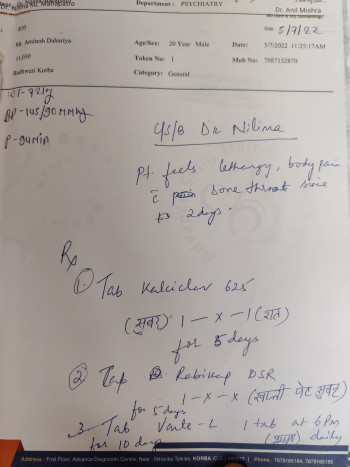 Dr. Anil Mishra
Department : PSYCHIATRY
Mr. Amitosh Dahariya
Age/Sex: 20 Year Male
Date: 5/7/2022 11:25:17AM
5/7/22
11,039
Token No: 1
Mob No: 7987152870
Korba
Category: General
BP - 145/90 MMHg
P - 94 min
C/S/B Dr Nilima
Pt. feels lethargy, body pain
c̄ sore throat since
2 days.
Rx
1. Tab 625
(सुबह) 1 — x — 1 (रात)
for 5 days
2. DSR
1 - x - x (खाली पेट सुबह)
for 5 days
3. Tab 1 tab at 6 PM
for 10 days (शाम) daily
Address : First Floor, Advance Diagnostic Centre, New - Niharika Talkies, KORBA
Phone : 7879165184, 7879165185